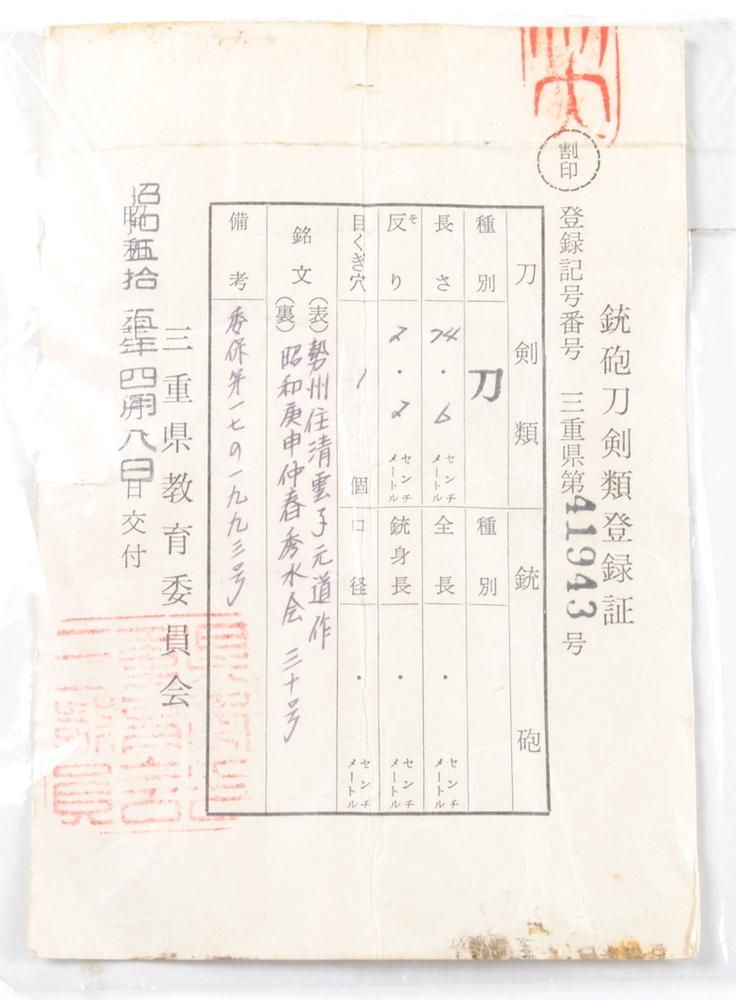 銃砲刀剣類登録証
割印
登録記号番号 三重県第41943号
刀剣類 銃砲
種別 刀 種別
長さ 74・6 センチメートル 全長 ・ センチメートル
反り そ 2・2 センチメートル 銃身長 ・ センチメートル
目くぎ穴 1 個 口径 ・ センチメートル
銘文 (表) 勢州住清雲子元道作
(裏) 昭和庚申仲春秀水会 三十号
備考 委保第一七の一九九三号
三重県教育委員会
昭和五拾五年四月八日交付